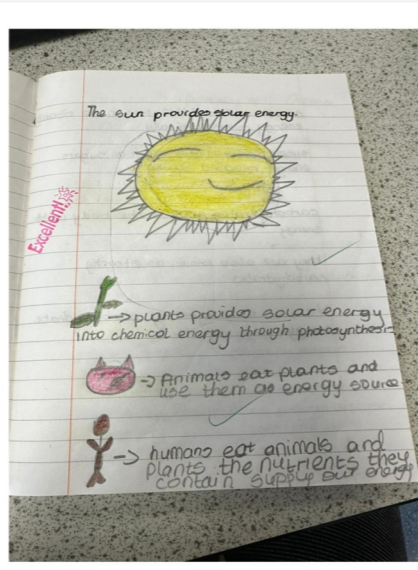 The sun provides solar energy.
Excellent!
plants provides solar energy
into chemical energy through photosynthesis
Animals eat plants and
use them as energy source
humans eat animals and
plants the nutrients they
contain supply our energy